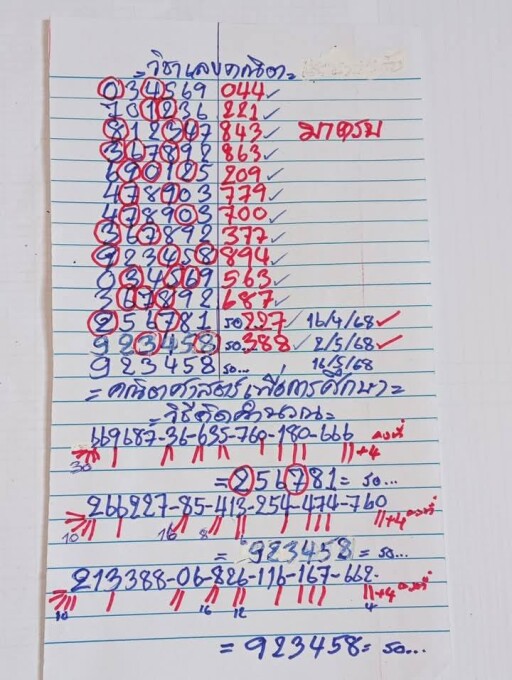 = วิชาเลขคณิต =
034569 044 ✓
701236 221 ✓
812347 843 ✓ มาครบ
367892 863 ✓
690125 209 ✓
478903 779 ✓
478903 700 ✓
367892 377 ✓
923458 894 ✓
034569 563 ✓
367892 687 ✓
256781 รอ 227 ✓ 16/4/68 ✓
923458 รอ.. 388 ✓ 2/5/68 ✓
923458 รอ... 16/5/68
= คณิตศาสตร์เพื่อการศึกษา =
= วิธีคิดคำนวณ =
669687-36-635-760-180-666
30 +4
= 256781 = รอ...
266227-85-413-254-474-760
10 16 8 +4
= 923458 = รอ...
213388-06-826-116-167-662
10 16 12 4 +4
= 923458 = รอ...